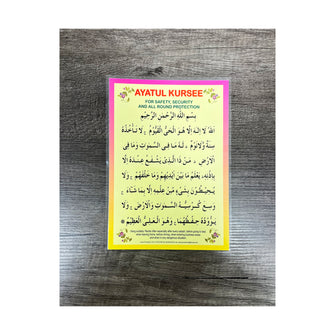 AYATUL KURSEE
FOR SAFETY, SECURITY
AND ALL ROUND PROTECTION
بِسْمِ اللّٰهِ الرَّحْمٰنِ الرَّحِيْمِ
اَللّٰهُ لَآ اِلٰهَ اِلَّا هُوَ الْحَىُّ الْقَيُّوْمُ ۚ لَا تَاْخُذُهٗ
سِنَةٌ وَّلَا نَوْمٌ ؕ لَهٗ مَا فِى السَّمٰوٰتِ وَمَا فِى
الْاَرْضِ ؕ مَنْ ذَا الَّذِىْ يَشْفَعُ عِنْدَهٗٓ اِلَّا
بِاِذْنِهٖ ؕ يَعْلَمُ مَا بَيْنَ اَيْدِيْهِمْ وَمَا خَلْفَهُمْ ۚ وَلَا
يُحِيْطُوْنَ بِشَىْءٍ مِّنْ عِلْمِهٖٓ اِلَّا بِمَا شَآءَ ۚ
وَسِعَ كُرْسِيُّهُ السَّمٰوٰتِ وَالْاَرْضَ ۚ وَلَا
يَـُٔوْدُهٗ حِفْظُهُمَا ۚ وَهُوَ الْعَلِىُّ الْعَظِيْمُ